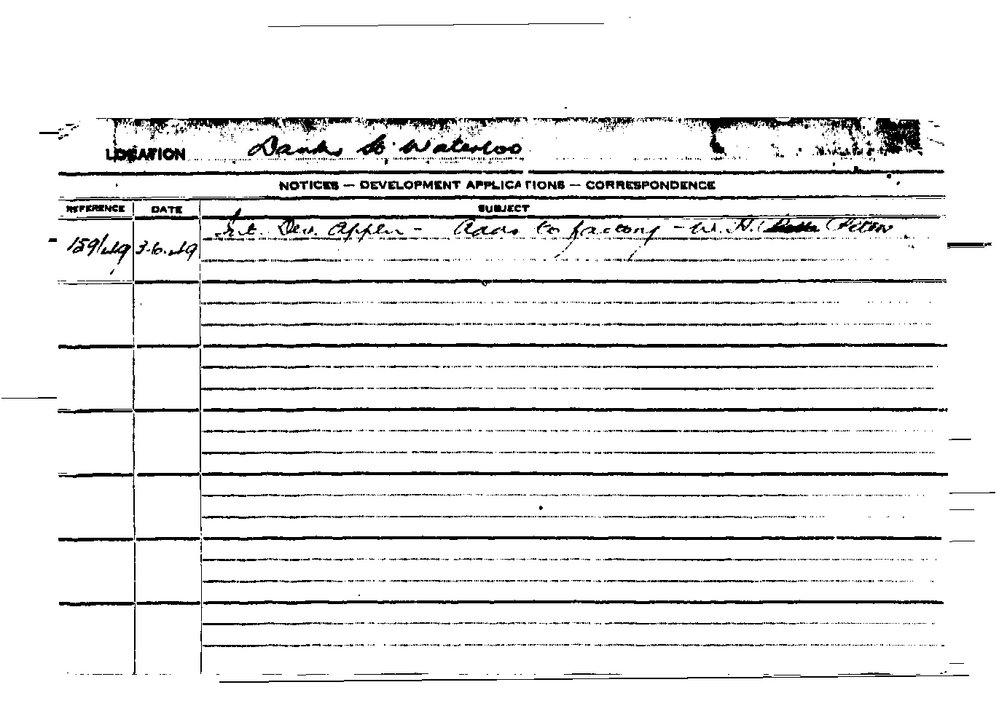 LOCATION Danks St Waterloo
NOTICES — DEVELOPMENT APPLICATIONS — CORRESPONDENCE
REFERENCE DATE SUBJECT
159/49 3.6.49 Int. Dev. Appln - Adds to factory - W. H.